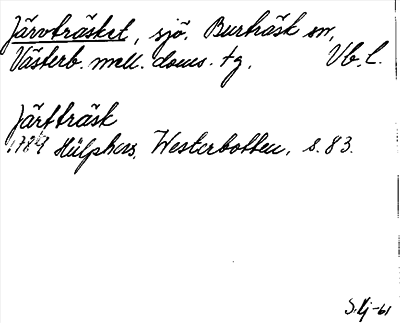 Järvträsket, sjö. Burträsk sn,
Västerb. mell. doms. tg. Vb. l.
Järfträsk
1789 Hülphers, Westerbotten, s. 83.
S.Lj-61